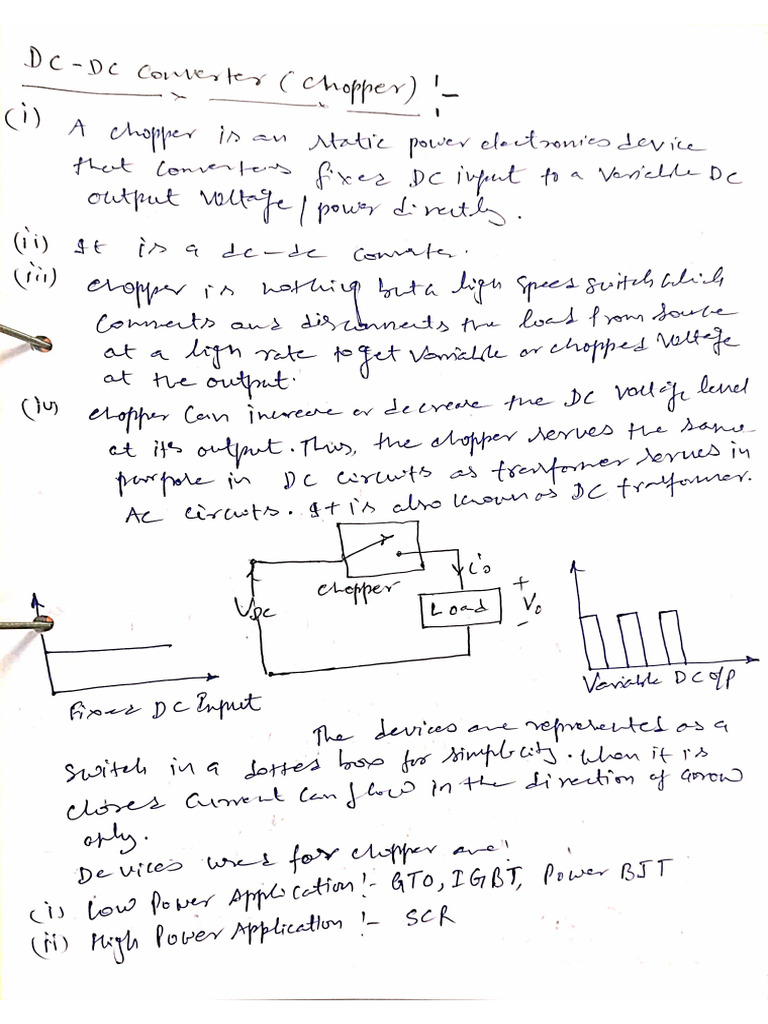 DC-DC Converter (Chopper) :-
(i) A chopper is an static power electronics device
that converters fixed DC input to a variable DC
output voltage / power directly.
(ii) It is a dc-dc converter.
(iii) chopper is nothing but a high speed switch which
connects and disconnects the load from source
at a high rate to get variable or chopped voltage
at the output.
(iv) chopper can increase or decrease the DC voltage level
at its output. Thus, the chopper serves the same
purpose in DC circuits as transformer serves in
AC circuits. It is also known as DC tranformer.
chopper
VDC
io
Load
+
Vo
-
Fixed DC Input
Variable DC o/p
The devices are represented as a
switch in a dotted box for simplicity. When it is
closed current can flow in the direction of arrow
only.
Devices used for chopper are:
(i) Low Power Application :- GTO, IGBT, Power BJT
(ii) High Power Application :- SCR